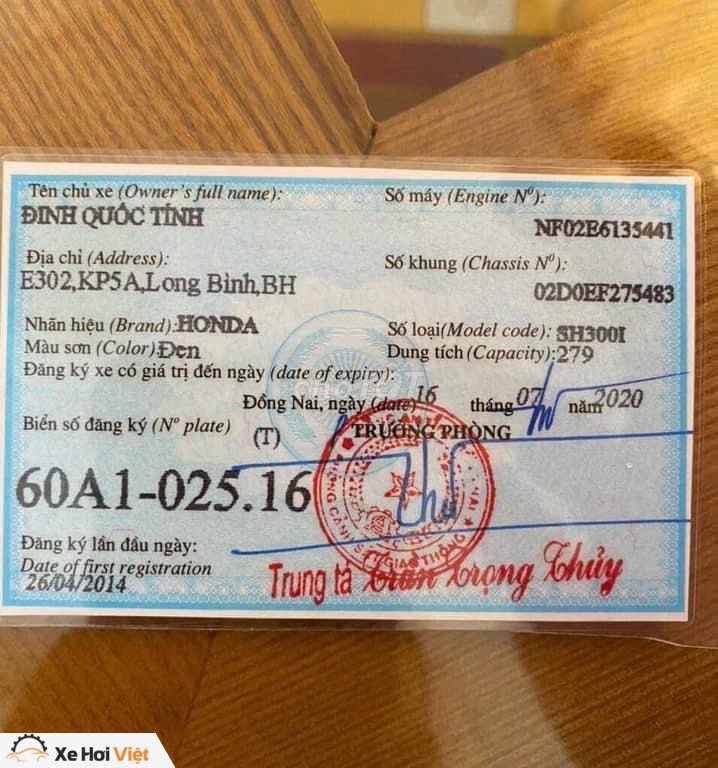 Tên chủ xe (Owner's full name):
ĐINH QUỐC TÍNH
Địa chỉ (Address):
E302,KP5A,Long Bình,BH
Nhãn hiệu (Brand):HONDA
Màu sơn (Color):Đen
Số máy (Engine Nº):
NF02E6135441
Số khung (Chassis Nº):
02D0EF275483
Số loại(Model code): SH300I
Dung tích (Capacity):279
Đăng ký xe có giá trị đến ngày (date of expiry):
Đồng Nai, ngày (date) 16 tháng 07 năm 2020
Biển số đăng ký (Nº plate) (T)
TRƯỞNG PHÒNG
60A1-025.16
Đăng ký lần đầu ngày:
Date of first registration
26/04/2014
GIAO THÔNG
Trung tá Trần Trọng Thủy
Xe Hơi Việt